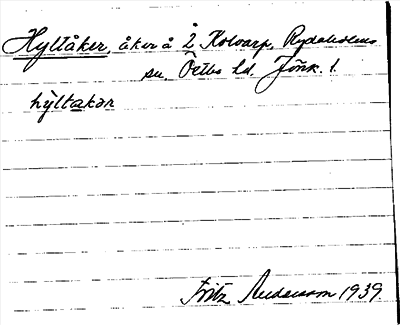 Hyltåker, åker å 2 Kolvarp, Rydaholms
sn, Östbo hd. Jönk. l.
hỳltakər
Fritz Andersson 1939